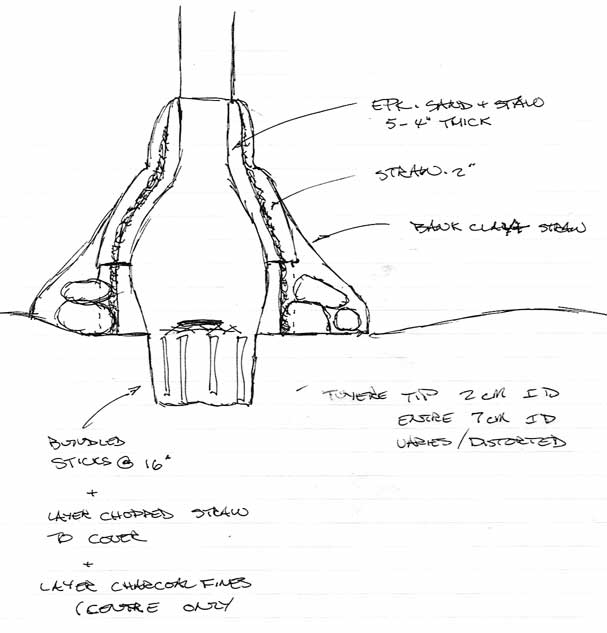 EPK. SAND + STRAW
5-4" THICK
STRAW. 2"
BANK CLAY STRAW
TUYERE TIP 2 CM ID
ENTIRE 7 CM ID
VARIES / DISTORTED
BUNDLED
STICKS @ 16"
+
LAYER CHOPPED STRAW
TO COVER
+
LAYER CHARCOAL FINES
(CENTRE ONLY